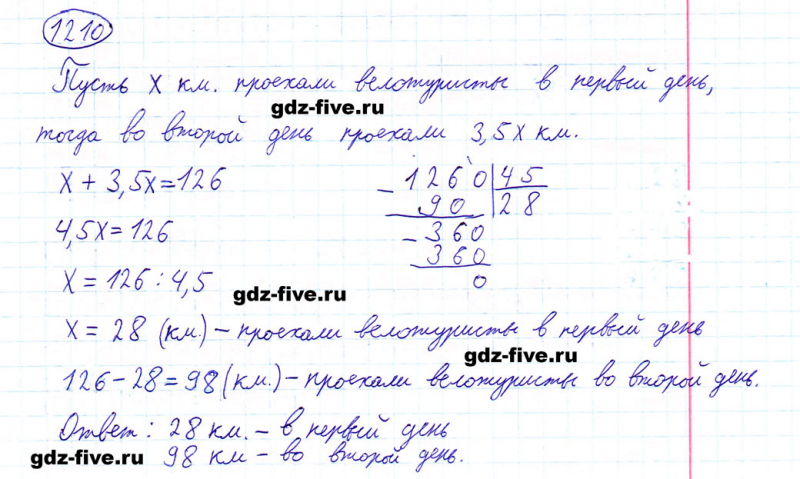 1210
Пусть x км. проехали велотуристы в первый день,
gdz-five.ru
тогда во второй день проехали 3,5x км.
x + 3,5x = 126
4,5x = 126
x = 126 : 4,5
1260 | 45
− 90 | 28
− 360
360
0
gdz-five.ru
x = 28 (км) – проехали велотуристы в первый день
gdz-five.ru
126 – 28 = 98 (км.) – проехали велотуристы во второй день.
Ответ: 28 км. – в первый день
gdz-five.ru 98 км – во второй день.